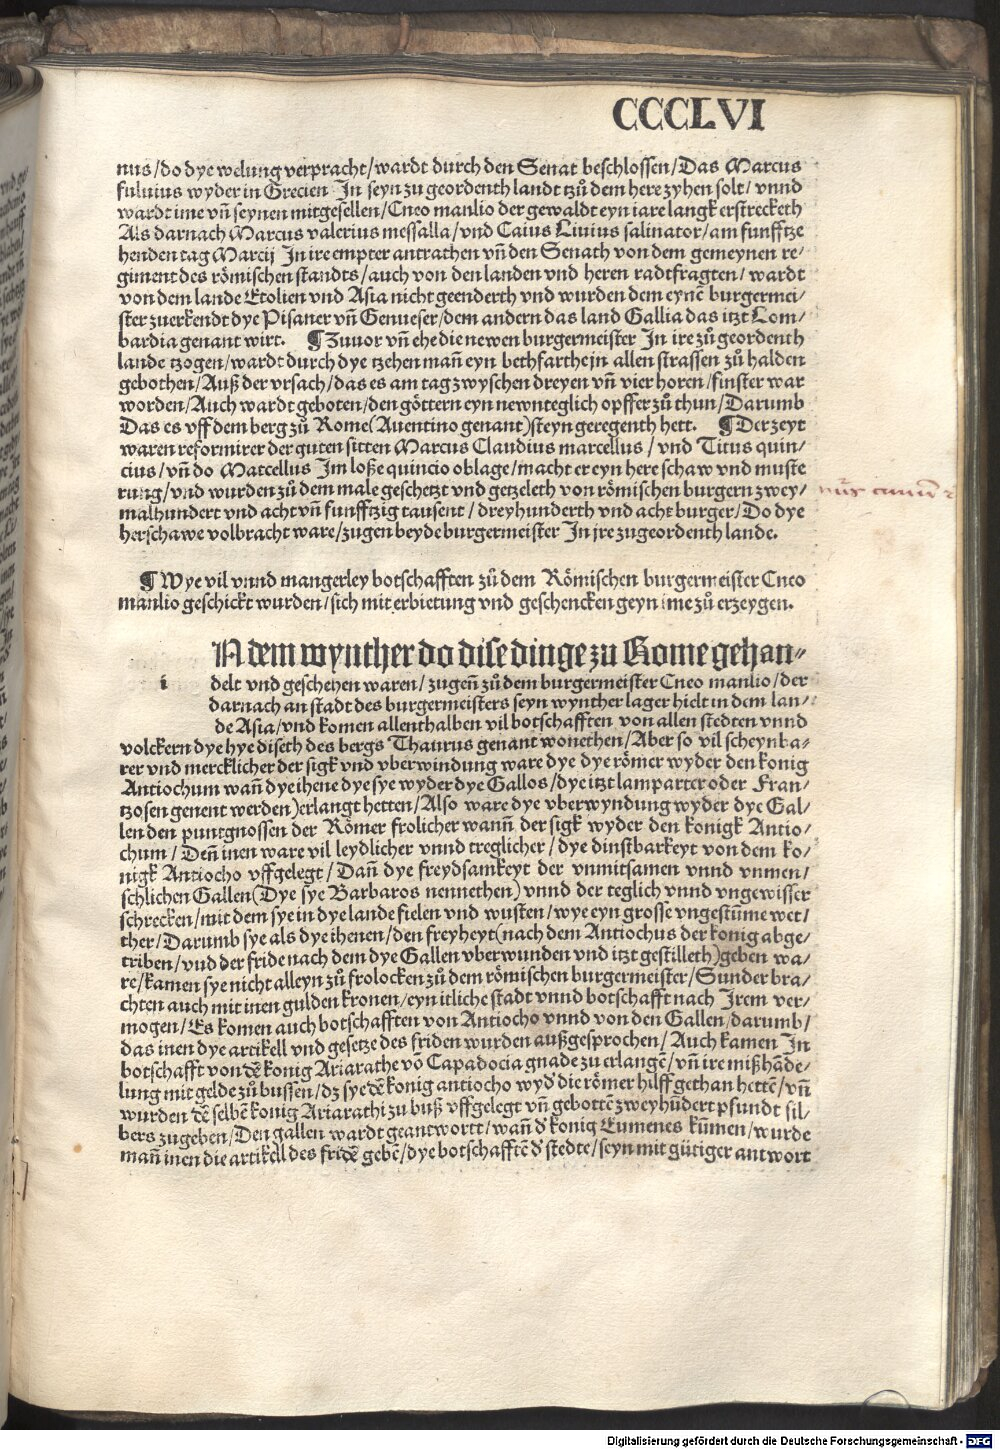 CCCLVI
nus/do dye welung verpracht/wardt durch den Senat beschlossen/Das Marcus
fuluius wyder in Grecien In seyn zu geordenth landt tzů dem here zyhen solt/vnnd
wardt ime vñ seynen mitgesellen/Cneo manlio der gewaldt eyn iare langk erstrecketh
Als darnach Marcus valerius messalla/vnd Caius Liuius salinator/am funfftze
henden tag Marcij In ire empter antrathen vñ den Senath von dem gemeynen re⸗
giment des römischen standts/auch von den landen vnd heren radtfragten/wardt
von dem lande Etolien vnd Asia nicht geenderth vnd wurden dem eynē burgermei/
ster zuerkendt dye Pisaner vñ Genueser/dem andern das land Gallia das itzt Lom/
bardia genant wirt. ¶Zuuor vñ ehe die newen burgermeister In ire zů geordenth
lande tzogen/wardt durch dye tzehen mañ eyn bethfarthe jn allen strassen zů halden
gebothen/Auß der vrsach/das es am tag zwyschen dreyen vñ vier horen/finster war
worden/Auch wardt geboten/den göttern eyn newnteglich opffer zů thun/Darumb
Das es vff dem berg zů Rome(Auentino genant)steyn geregenth hett. ¶Der zeyt
waren reformirer der guten sitten Marcus Claudius marcellus/vnd Titus quin/
cius/vñ do Matcellus Im loße quincio oblage/macht er eyn here schaw vnd muste
rung/vnd wurden zů dem male geschetzt vnd getzeleth von römischen burgern zwey/
malhundert vnd acht vñ funfftzig tausent/dreyhunderth vnd acht burger/Do dye
herschawe volbracht ware/zugen beyde burgermeister In jre zugeordenth lande.
¶Wye vil vnnd mangerley botschafften zů dem Römischen burgermeister Cneo
manlio geschickt wurden/sich mit erbietung vnd geschencken geyn ime zů erzeygen.
N dem wynther do dise dinge zu Rome gehan⸗
i delt vnd geschehen waren/zugeñ zů dem burgermeister Cneo manlio/der
darnach an stadt des burgermeisters seyn wynther lager hielt in dem lan/
de Asia/vnd komen allenthalben vil botschafften von allen stedten vnnd
volckern dye hye diseth des bergs Thaurus genant wonethen/Aber so vil scheynba⸗
rer vnd mercklicher der sigk vnd vberwindung ware dye dye römer wyder den konig
Antiochum wañ dye ihene dye sye wyder dye Gallos/dye itzt lamparter oder Fran/
tzosen genent werden)erlangt hetten/Also ware dye vberwyndung wyder dye Gal⸗
len den puntgnossen der Römer frolicher wanñ der sigk wyder den konigk Antio/
chum/Deñ inen ware vil leydlicher vnnd treglicher/dye dinstbarkeyt von dem ko/
nigk Antiocho vffgelegt/Dañ dye freydsamkeyt der vnmitsamen vnnd vnmen/
schlichen Gallen(Dye sye Barbaros nennethen)vnnd der teglich vnnd vngewisser
schrecken/mit dem sye in dye lande fielen vnd wusten/wye eyn grosse vngestūme wet/
ther/Darumb sye als dye ihenen/den freyheyt(nach dem Antiochus der konig abge/
triben/vnd der fride nach dem dye Gallen vberwunden vnd itzt gestilleth)geben wa/
re/kamen sye nicht alleyn zů frolocken zů dem römischen burgermeister/Sunder bra/
chten auch mit inen gulden kronen/eyn itliche stadt vnnd botschafft nach Irem ver/
mogen/Es komen auch botschafften von Antiocho vnnd von den Gallen/darumb/
das inen dye artikell vnd gesetze des friden wurden außgesprochen/Auch kamen In
botschafft von dē konig Ariarathe vō Capadocia gnade zu erlangē/vñ ire mißhāde/
lung mit gelde zů bussen/dz sye dē konig antiocho wyd᷑ die römer hilff gethan hettē/vñ
wurden dē selbē konig Ariarathi zu buß vffgelegt vñ gebottē zweyhūdert pfundt sil/
bers zugeben/Den gallen wardt geantwortt/wañ d᷑ konig Eumenes kūmen/wurde
mañ inen die artikell des fridē gebē/dye botschafftē d᷑ stedte/seyn mit gütiger antwort
Digitalisierung gefördert durch die Deutsche Forschungsgemeinschaft - DFG